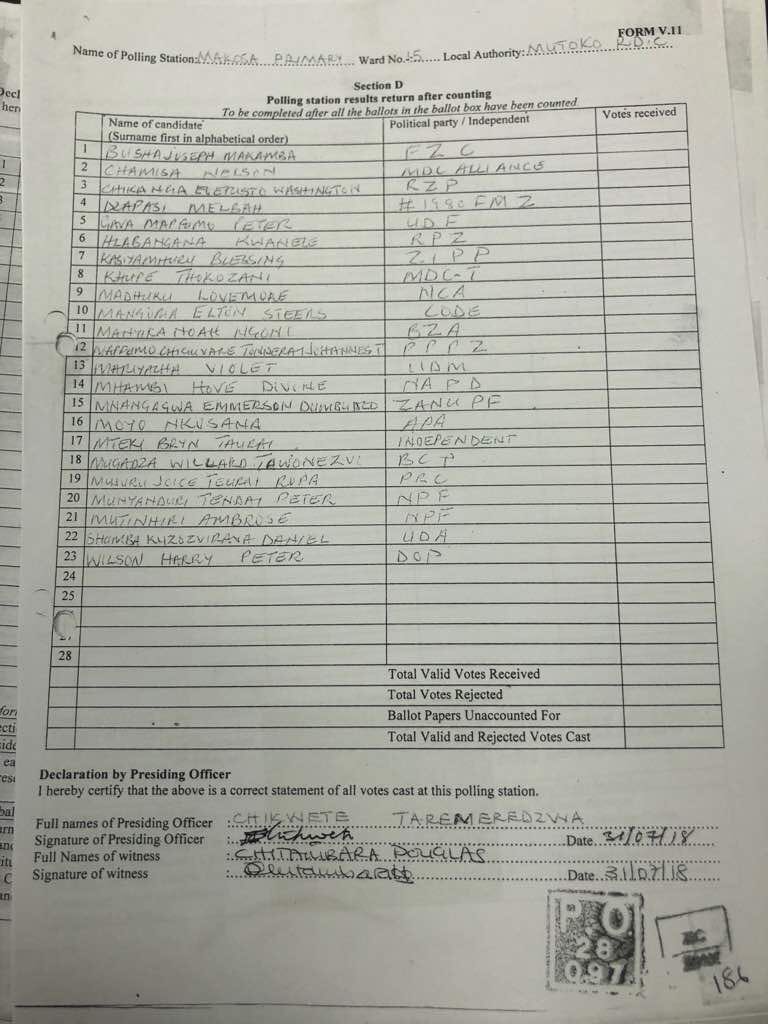 FORM V.11
Name of Polling Station: MAKOSA PRIMARY Ward No. 15 Local Authority: MUTOKO R.D.C
Section D
Polling station results return after counting
To be completed after all the ballots in the ballot box have been counted
Name of candidate (Surname first in alphabetical order) Political party / Independent Votes received
1 BUSHA JOSEPH MAKAMBA FZC
2 CHAMISA NELSON MDC ALLIANCE
3 CHIKANGA EVERISTO WASHINGTON RZP
4 DZAPASI MELBAH #1980 FMZ
5 GAVA MAPFUMO PETER UDF
6 HLABANGANA KWANELE RPZ
7 KASIYAMHURU BLESSING ZIPP
8 KHUPE THOKOZANI MDC-T
9 MADHUKU LOVEMORE NCA
10 MANGOMA ELTON STEERS CODE
11 MANYIKA NOAH NGONI BZA
12 MAPFUMO CHIGUVARE TONDERAI JOHANNES T PPPZ
13 MARIYACHA VIOLET UDM
14 MHAMBI HOVE DIVINE NAPD
15 MNANGAGWA EMMERSON DUMBUDZO ZANU PF
16 MOYO NKUSANA APA
17 MTEKI BRYN TAURAI INDEPENDENT
18 MUGADZA WILLARD TAWONEZVI BCP
19 MUJURU JOICE TEURAI ROPA PRC
20 MUNYANDURI TENDAI PETER NPF
21 MUTINHIRI AMBROSE NPF
22 SHUMBA KUZOZVIRAVA DANIEL UDA
23 WILSON HARRY PETER DOP
24
25
28
Total Valid Votes Received
Total Votes Rejected
Ballot Papers Unaccounted For
Total Valid and Rejected Votes Cast
Declaration by Presiding Officer
I hereby certify that the above is a correct statement of all votes cast at this polling station.
Full names of Presiding Officer : CHIKWETE TAREMEREDZWA
Signature of Presiding Officer : Date 31/07/18
Full Names of witness : CHITAMBARA DOUGLAS
Signature of witness : Date 31/07/18
P.O.
28
097
186